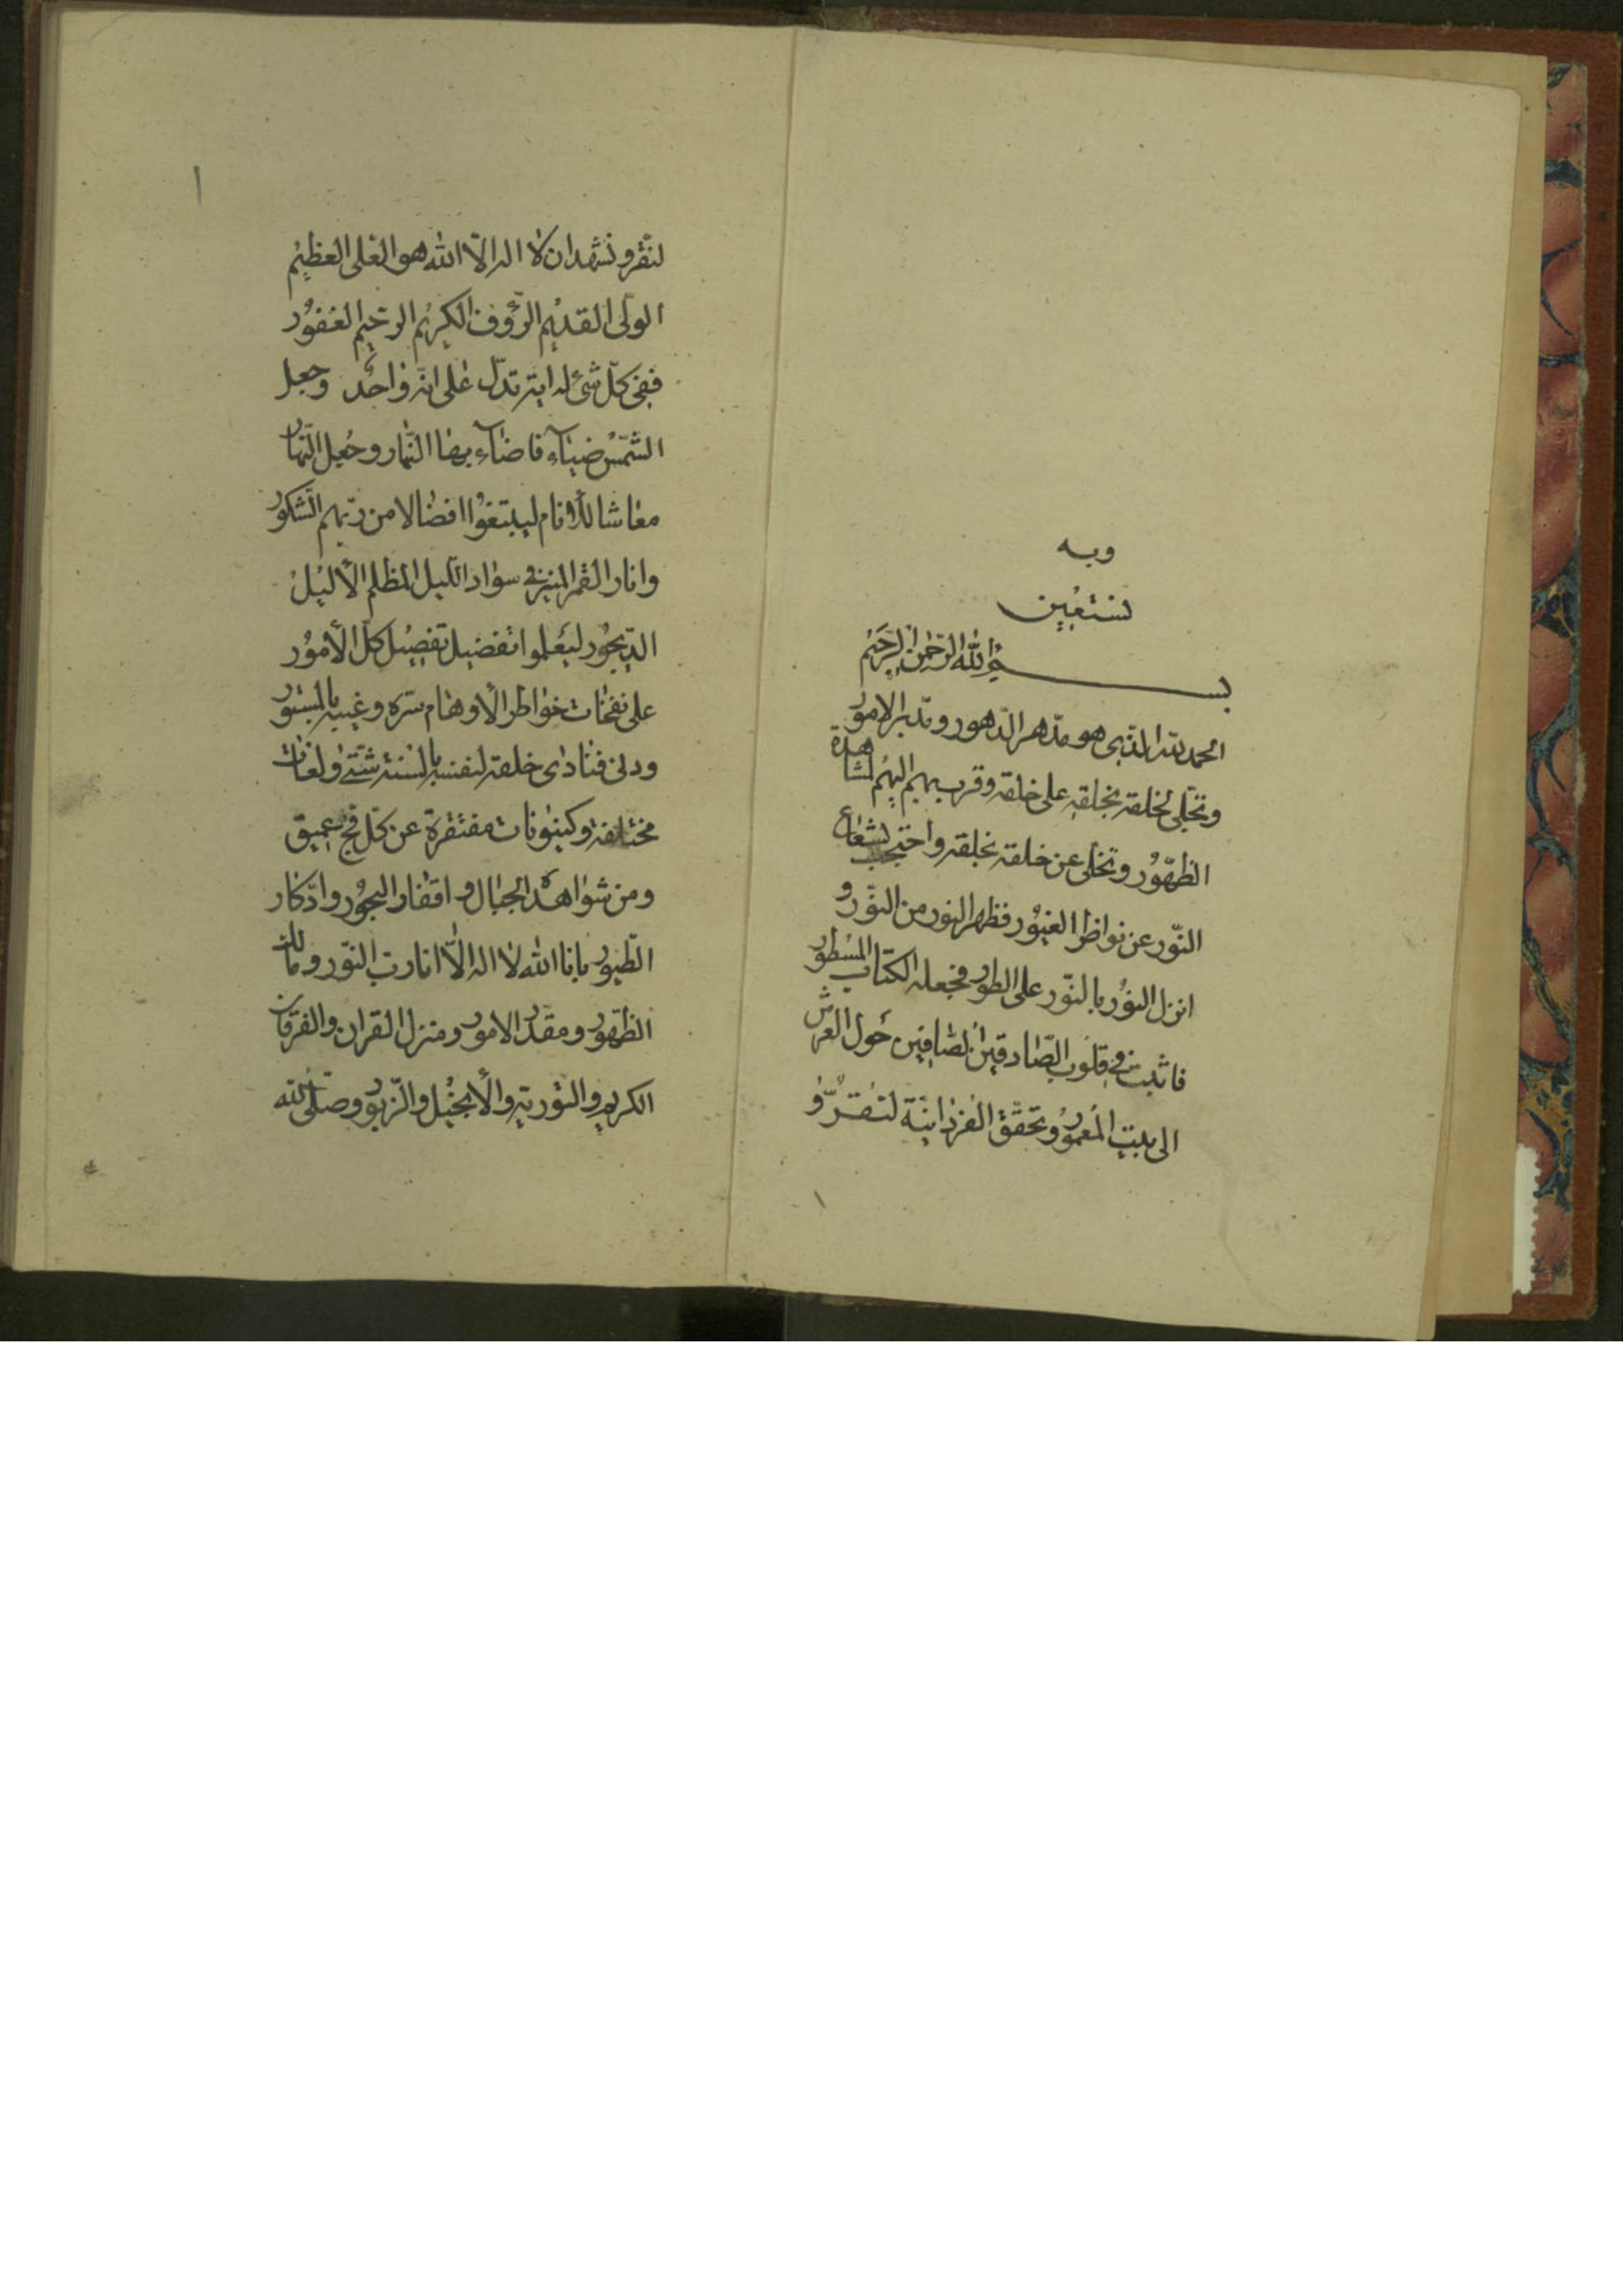 وبه
نستعين
بسم الله الرحمن الرحيم
الحمد لله الذى هو مدهر الدهور ومدبر الامور
وتجلى لخلقه بخلقه على خلقه وقرب بهم اليهم لمشاهدة
الظهور وتخلى عن خلقه بخلقه واحتجب بشعاع
النور عن نواظر الغيور فظهر النور من النور و
انزل النور بالنور على الطور فجعله الكتاب المسطور
فاثبت فى قلوب الصادقين الصافين حول العرش
الى بيت المعمور وتحقق الفردانية لتقر و
١
لنقر ونشهد ان لا اله الا الله هو العلى العظيم
الولى القديم الرؤف الكريم الرحيم الغفور
ففى كل شئ له اية تدل على انه واحد وجعل
الشمس ضياء فاضاء بها النهار وجعل النهار
معاشا للانام ليبتغوا افضالا من ربهم الشكور
وانار القمر المنير فى سواد الليل المظلم الأليل
الديجور ليعلموا تفضيل تفصيل كل الأمور
على نفخات خواطر الأوهام سره وغيبه بالمستور
ودنى فنادى خلقه لنفسه بالسنة شتى ولغات
مختلفة وكينونات مفتقرة عن كل فج عميق
ومن شواهد الجبال و اقفار البحور وادكار
الطيور بانا الله لا اله الا انا رب النور ومالك
الظهور ومقدر الامور ومنزل القران والفرقان
الكريم والتورية والأنجيل والزبور وصلى الله